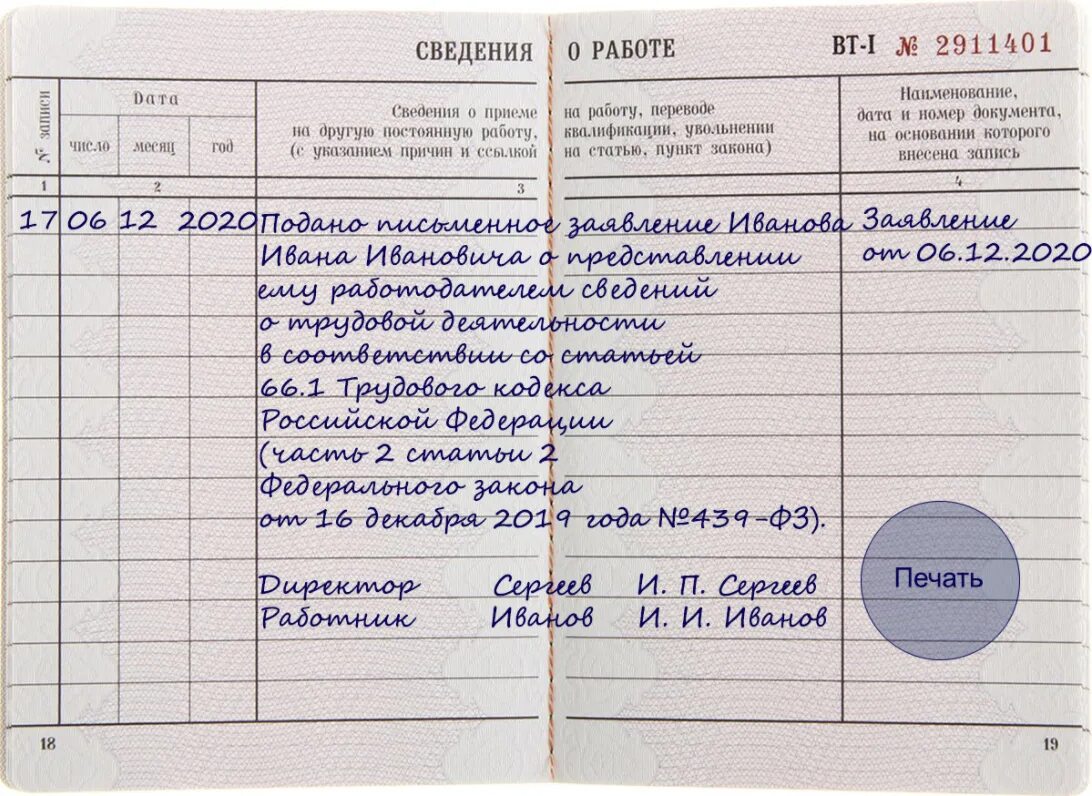 СВЕДЕНИЯ О РАБОТЕ ВТ-I № 2911401
№ записи
Дата
число месяц год
Сведения о приеме на работу, переводе
на другую постоянную работу, квалификации, увольнении
(с указанием причин и ссылкой на статью, пункт закона)
Наименование,
дата и номер документа,
на основании которого
внесена запись
1 2 3 4
17 06 12 2020 Подано письменное заявление Иванова Заявление
Ивана Ивановича о представлении от 06.12.2020
ему работодателем сведений
о трудовой деятельности
в соответствии со статьей
66.1 Трудового кодекса
Российской Федерации
(часть 2 статьи 2
Федерального закона
от 16 декабря 2019 года №439-ФЗ).
Директор Сергеев И. П. Сергеев
Работник Иванов И. И. Иванов
Печать
18 19